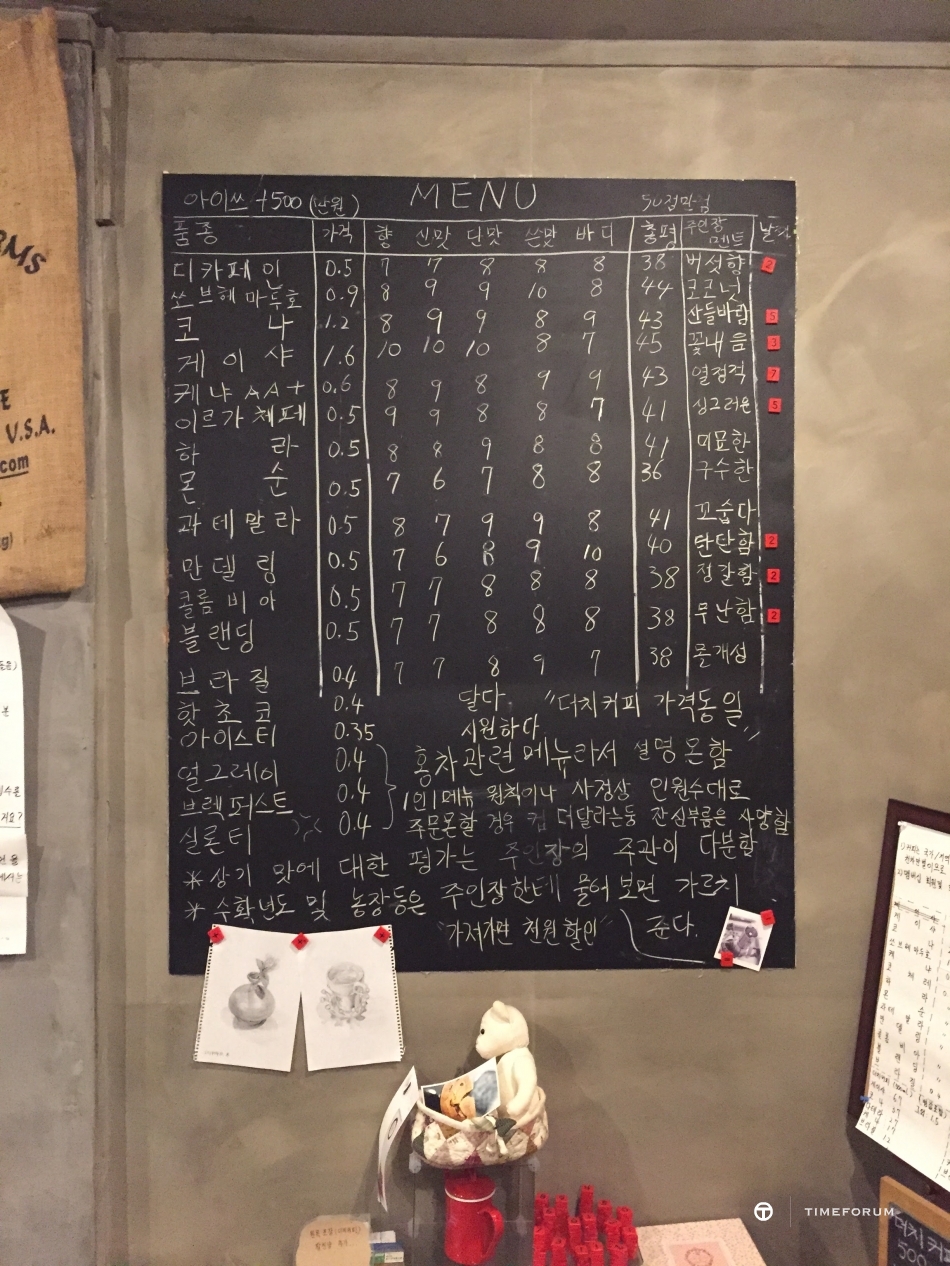 아이쓰 +500 (만원) MENU 50점만점
품종 가격 향 신맛 단맛 쓴맛 바디 총평 주인장 멘트 날짜
디카페인 0.5 7 7 8 8 8 38 버섯향 2
쏘브헤마두호 0.9 8 9 9 10 8 44 코코넛
코나 1.2 8 9 9 8 9 43 산들바람 5
게이샤 1.6 10 10 10 8 7 45 꽃내음 3
케냐AA+ 0.6 8 9 8 9 9 43 열정적 7
이르가체페 0.5 9 9 8 8 7 41 싱그러운 5
하라 0.5 8 8 9 8 8 41 미묘한
몬순 0.5 7 6 7 8 8 36 구수한
과테말라 0.5 8 7 9 9 8 41 꼬숩다
만델링 0.5 7 6 8 9 10 40 탄탄함 2
콜롬비아 0.5 7 7 8 8 8 38 정갈함 2
블랜딩 0.5 7 7 8 8 8 38 무난함 2
브라질 0.4 7 7 8 9 7 38 몬개성
핫초코 0.4 달다. "더치커피 가격동일"
아이스티 0.35 시원하다
얼그레이 0.4 홍차관련메뉴라서 설명몬함
브렉퍼스트 0.4 1인1메뉴 원칙이나 사정상 인원수대로
실론티 0.4 주문몬할 경우 컵 더달라는둥 잔심부름은 사양함
*상기 맛에 대한 평가는 주인장의 주관이 다분함
*수확년도 및 농장등은 주인장한테 물어보면 가르치
준다.
"가져가면 천원할인"
RMS
E
V.S.A.
.com
TIMEFORUM
더치커피
500